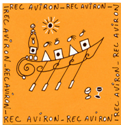 REC AVIRON_REC AVIRON_
REC AVIRON_REC AVIRON
REC AVIRON_REC AVIRON
REC AVIRON_REC AVIRON